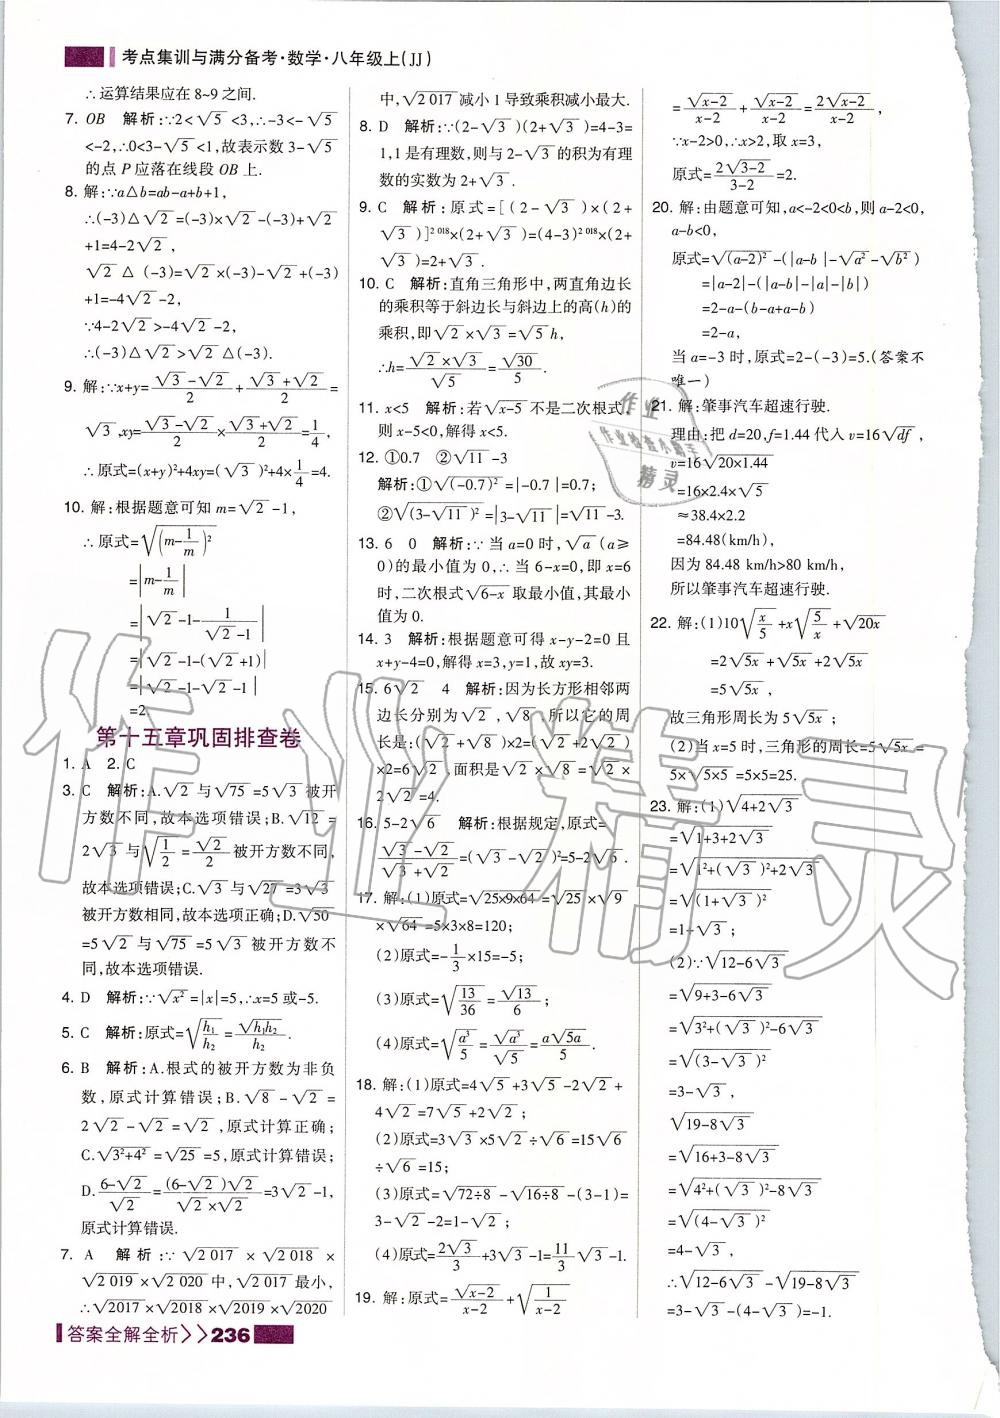 考点集训与满分备考·数学·八年级上(JJ)
∴运算结果应在8~9之间.
7. OB 解析:∵2<√5<3,∴-3<-√5
<-2,∴0<3-√5<1,故表示数3-√5
的点P应落在线段OB上.
8. 解:∵a△b=ab-a+b+1,
∴(-3)△√2=(-3)×√2-(-3)+√2
+1=4-2√2,
√2△(-3)=√2×(-3)-√2+(-3)
+1=-4√2-2,
∵4-2√2>-4√2-2,
∴(-3)△√2>√2△(-3).
9. 解:∵x+y=(√3-√2)/2+(√3+√2)/2=
√3,xy=(√3-√2)/2×(√3+√2)/2=1/4,
∴原式=(x+y)²+4xy=(√3)²+4×1/4=4.
10. 解:根据题意可知m=√2-1,
∴原式=√(m-1/m)²
=|m-1/m|
=|√2-1-1/(√2-1)|
=|√2-1-(√2+1)|
=|√2-1-√2-1|
=2.
第十五章巩固排查卷
1. A 2. C
3. C 解析:A.√2与√75=5√3被开
方数不同,故本选项错误;B.√12=
2√3与√(1/2)=√2/2被开方数不同,
故本选项错误;C.√3与√27=3√3
被开方数相同,故本选项正确;D.√50
=5√2与√75=5√3被开方数不
同,故本选项错误.
4. D 解析:∵√x²=|x|=5,∴x=5或-5.
5. C 解析:原式=√(h₁/h₂)=√(h₁h₂)/h₂.
6. B 解析:A.根式的被开方数为非负
数,原式计算错误;B.√8-√2=
2√2-√2=√2,原式计算正确;
C.√(3²+4²)=√25=5,原式计算错误;
D.(6-√2)/√2=(6-√2)×√2/(√2×√2)=3√2-1,
原式计算错误.
7. A 解析:∵√2 017×√2 018×
√2 019×√2 020中,√2 017最小,
∴√2017×√2018×√2019×√2020
中,√2 017减小1导致乘积减小最大.
8. D 解析:∵(2-√3)(2+√3)=4-3=
1,1是有理数,则与2-√3的积为有理
数的实数为2+√3.
9. C 解析:原式=[(2-√3)×(2+
√3)]²⁰¹⁸×(2+√3)=(4-3)²⁰¹⁸×(2+
√3)=2+√3.
10. C 解析:直角三角形中,两直角边长
的乘积等于斜边长与斜边上的高(h)的
乘积,即√2×√3=√5h,
∴h=(√2×√3)/√5=√30/5.
11. x<5 解析:若√(x-5)不是二次根式,
则x-5<0,解得x<5.
12. ①0.7 ②√11-3
解析:①√(-0.7)²=|-0.7|=0.7;
②√(3-√11)²=|3-√11|=√11-3.
13. 6 0 解析:∵当a=0时,√a(a≥
0)的最小值为0,∴当6-x=0,即x=6
时,二次根式√(6-x)取最小值,其最小
值为0.
14. 3 解析:根据题意可得x-y-2=0且
x+y-4=0,解得x=3,y=1,故xy=3.
15. 6√2 4 解析:因为长方形相邻两
边长分别为√2,√8.所以它的周
长是:(√2+√8)×2=(√2+2√2)
×2=6√2,面积是√2×√8=√2×
2√2=4.
16. 5-2√6 解析:根据规定,原式=
(√3-√2)/(√3+√2)=(√3-√2)²=5-2√6.
17. 解:(1)原式=√(25×9×64)=√25×√9
×√64=5×3×8=120;
(2)原式=-1/3×15=-5;
(3)原式=√(13/36)=√13/6;
(4)原式=√(a³/5)=√a³/√5=a√(5a)/5.
18. 解:(1)原式=4√5+3√5-2√2+
4√2=7√5+2√2;
(2)原式=3√3×5√2÷√6=15√6
÷√6=15;
(3)原式=√(72÷8)-√(16÷8)-(3-1)=
3-√2-2=1-√2;
(4)原式=2√3/3+3√3-1=11/3√3-1.
19. 解:原式=√(x-2)/(x-2)+√(1/(x-2))
=√(x-2)/(x-2)+√(x-2)/(x-2)=2√(x-2)/(x-2),
∵x-2>0,∴x>2,取x=3,
原式=2√(3-2)/(3-2)=2.
20. 解:由题意可知,a<-2<0<b,则a-2<0,
a-b<0,
原式=√(a-2)²-(|a-b|-√a²-√b²)
=|a-2|-(|a-b|-|a|-|b|)
=2-a-(b-a+a-b)
=2-a,
当a=-3时,原式=2-(-3)=5.(答案不
唯一)
21. 解:肇事汽车超速行驶.
理由:把d=20,f=1.44代入v=16√(df),
v=16√(20×1.44)
=16×2.4×√5
≈38.4×2.2
=84.48(km/h),
因为84.48 km/h>80 km/h,
所以肇事汽车超速行驶.
22. 解:(1)10√(x/5)+x√(5/x)+√(20x)
=2√(5x)+√(5x)+2√(5x)
=5√(5x),
故三角形周长为5√(5x);
(2)当x=5时,三角形的周长=5√(5x)=
5×√(5×5)=5×5=25.
23. 解:(1)√(4+2√3)
=√(1+3+2√3)
=√(1²+(√3)²+2√3)
=√(1+√3)²
=1+√3;
(2)∵√(12-6√3)
=√(9+3-6√3)
=√(3²+(√3)²-6√3)
=√(3-√3)²
=3-√3,
√(19-8√3)
=√(16+3-8√3)
=√(4²+(√3)²-8√3)
=√(4-√3)²
=4-√3,
∴√(12-6√3)-√(19-8√3)
=3-√3-(4-√3)=-1.
答案全解全析>>236
作业精灵
作业
作业检查小助手
精灵